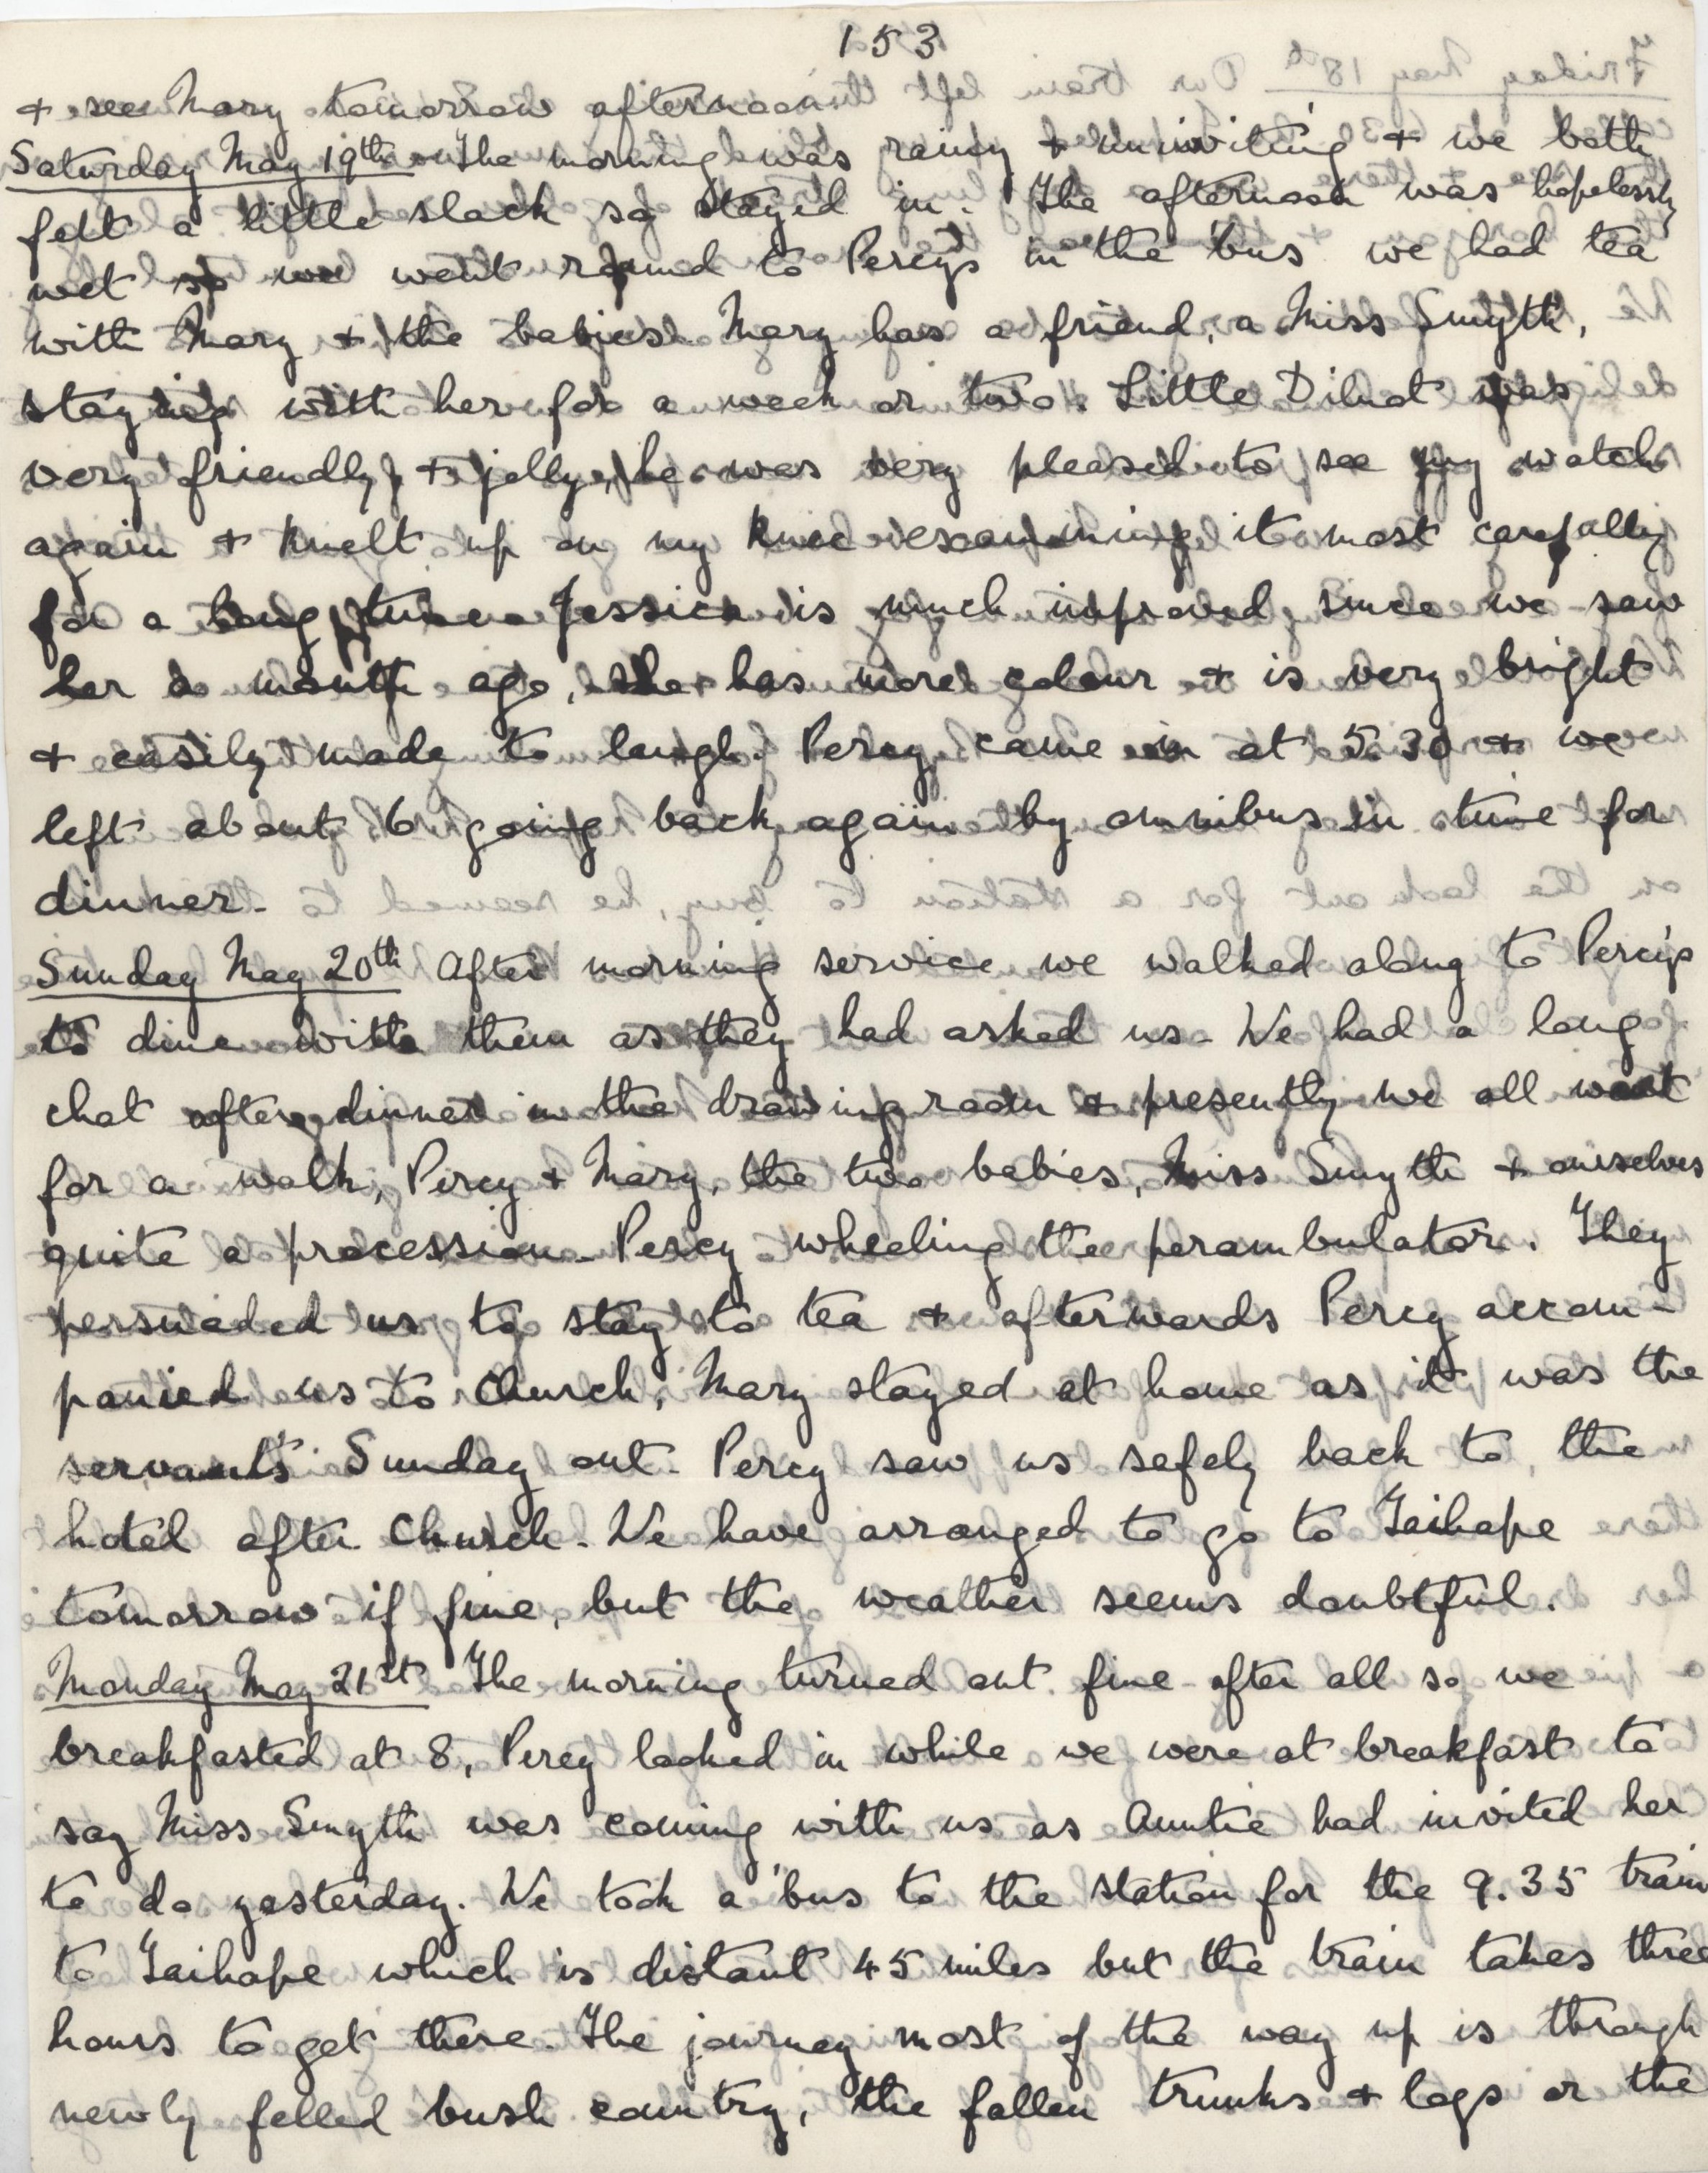 153
& see Mary tomorrow afternoon.
Saturday May 19th The morning was rainy & uninviting & we both
felt a little slack so stayed in. The afternoon was hopelessly
wet so we went round to Percy's in the 'bus we had tea
with Mary & the babies. Mary has a friend, a Miss Smyth,
staying with her for a week or two. Little Dilnot was
very friendly & jolly, he was very pleased to see my watch
again & knelt up on my knee examining it most carefully
for a long time. Jessica is much improved since we saw
her a month ago, she has more colour & is very bright
& easily made to laugh. Percy came in at 5.30 & we
left about 6 going back again by omnibus in time for
dinner.
Sunday May 20th After morning service we walked along to Percy's
to dine with them as they had asked us. We had a long
chat after dinner in the drawing room & presently we all went
for a walk, Percy & Mary, the two babies, Miss Smyth & ourselves
quite a procession - Percy wheeling the perambulator. They
persuaded us to stay to tea & afterwards Percy accom-
panied us to Church, Mary stayed at home as it was the
servants' Sunday out. Percy saw us safely back to the
hotel after Church. We have arranged to go to Taihape
tomorrow if fine, but the weather seems doubtful.
Monday May 21st The morning turned out fine after all so we
breakfasted at 8, Percy looked in while we were at breakfast to
say Miss Smyth was coming with us as Auntie had invited her
to do yesterday. We took a 'bus to the station for the 9.35 train
to Taihape which is distant 45 miles but the train takes three
hours to get there. The journey most of the way up is through
newly felled bush country, the fallen trunks & logs or the